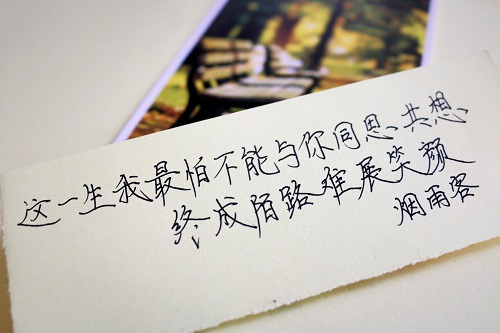 这一生我最怕不能与你同思、共想、
终成陌路难展笑颜
烟雨客